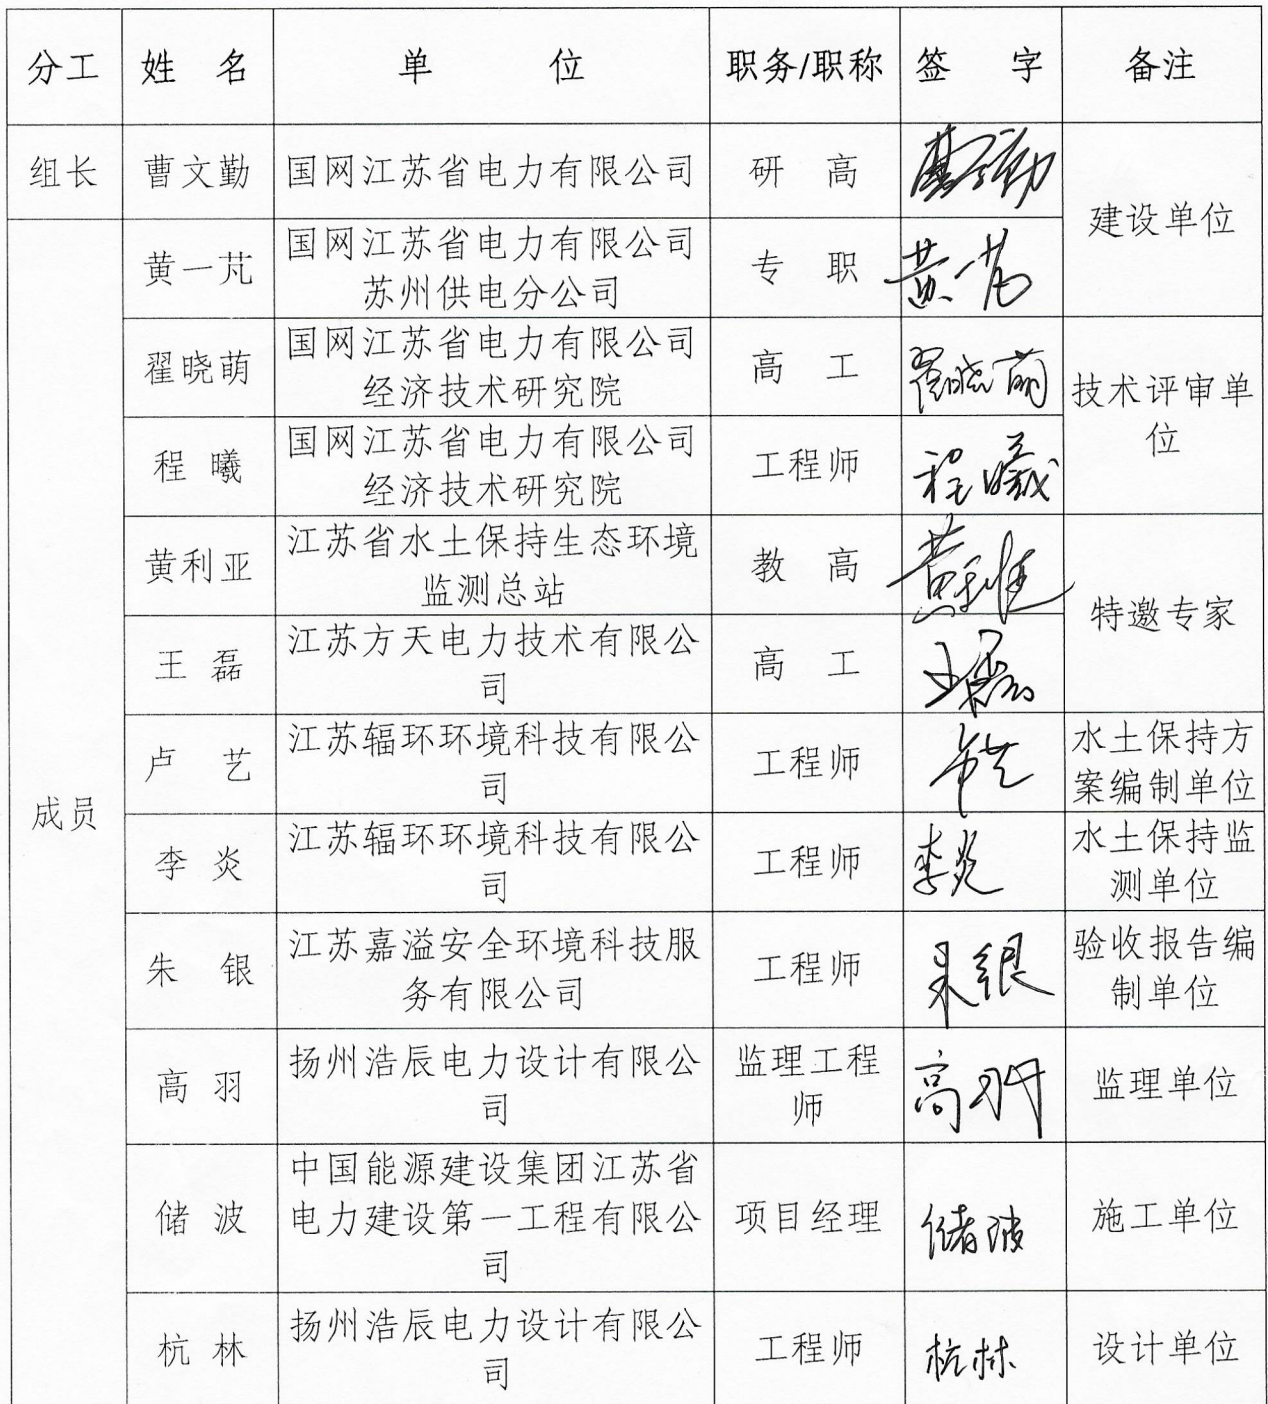 分工 姓 名 单 位 职务/职称 签 字 备注
组长 曹文勤 国网江苏省电力有限公司 研 高 曹文勤
建设单位
成员
黄一芃 国网江苏省电力有限公司
苏州供电分公司 专 职 黄一芃
翟晓萌 国网江苏省电力有限公司
经济技术研究院 高 工 翟晓萌
技术评审单
位
程 曦 国网江苏省电力有限公司
经济技术研究院 工程师 程曦
黄利亚 江苏省水土保持生态环境
监测总站 教 高
特邀专家
王 磊 江苏方天电力技术有限公
司 高 工 王磊
卢 艺 江苏辐环环境科技有限公
司 工程师 卢艺
水土保持方
案编制单位
李 炎 江苏辐环环境科技有限公
司 工程师 李炎
水土保持监
测单位
朱 银 江苏嘉溢安全环境科技服
务有限公司 工程师 朱银
验收报告编
制单位
高 羽 扬州浩辰电力设计有限公
司 监理工程
师 高羽 监理单位
储 波 中国能源建设集团江苏省
电力建设第一工程有限公
司 项目经理 储波 施工单位
杭 林 扬州浩辰电力设计有限公
司 工程师 杭林 设计单位